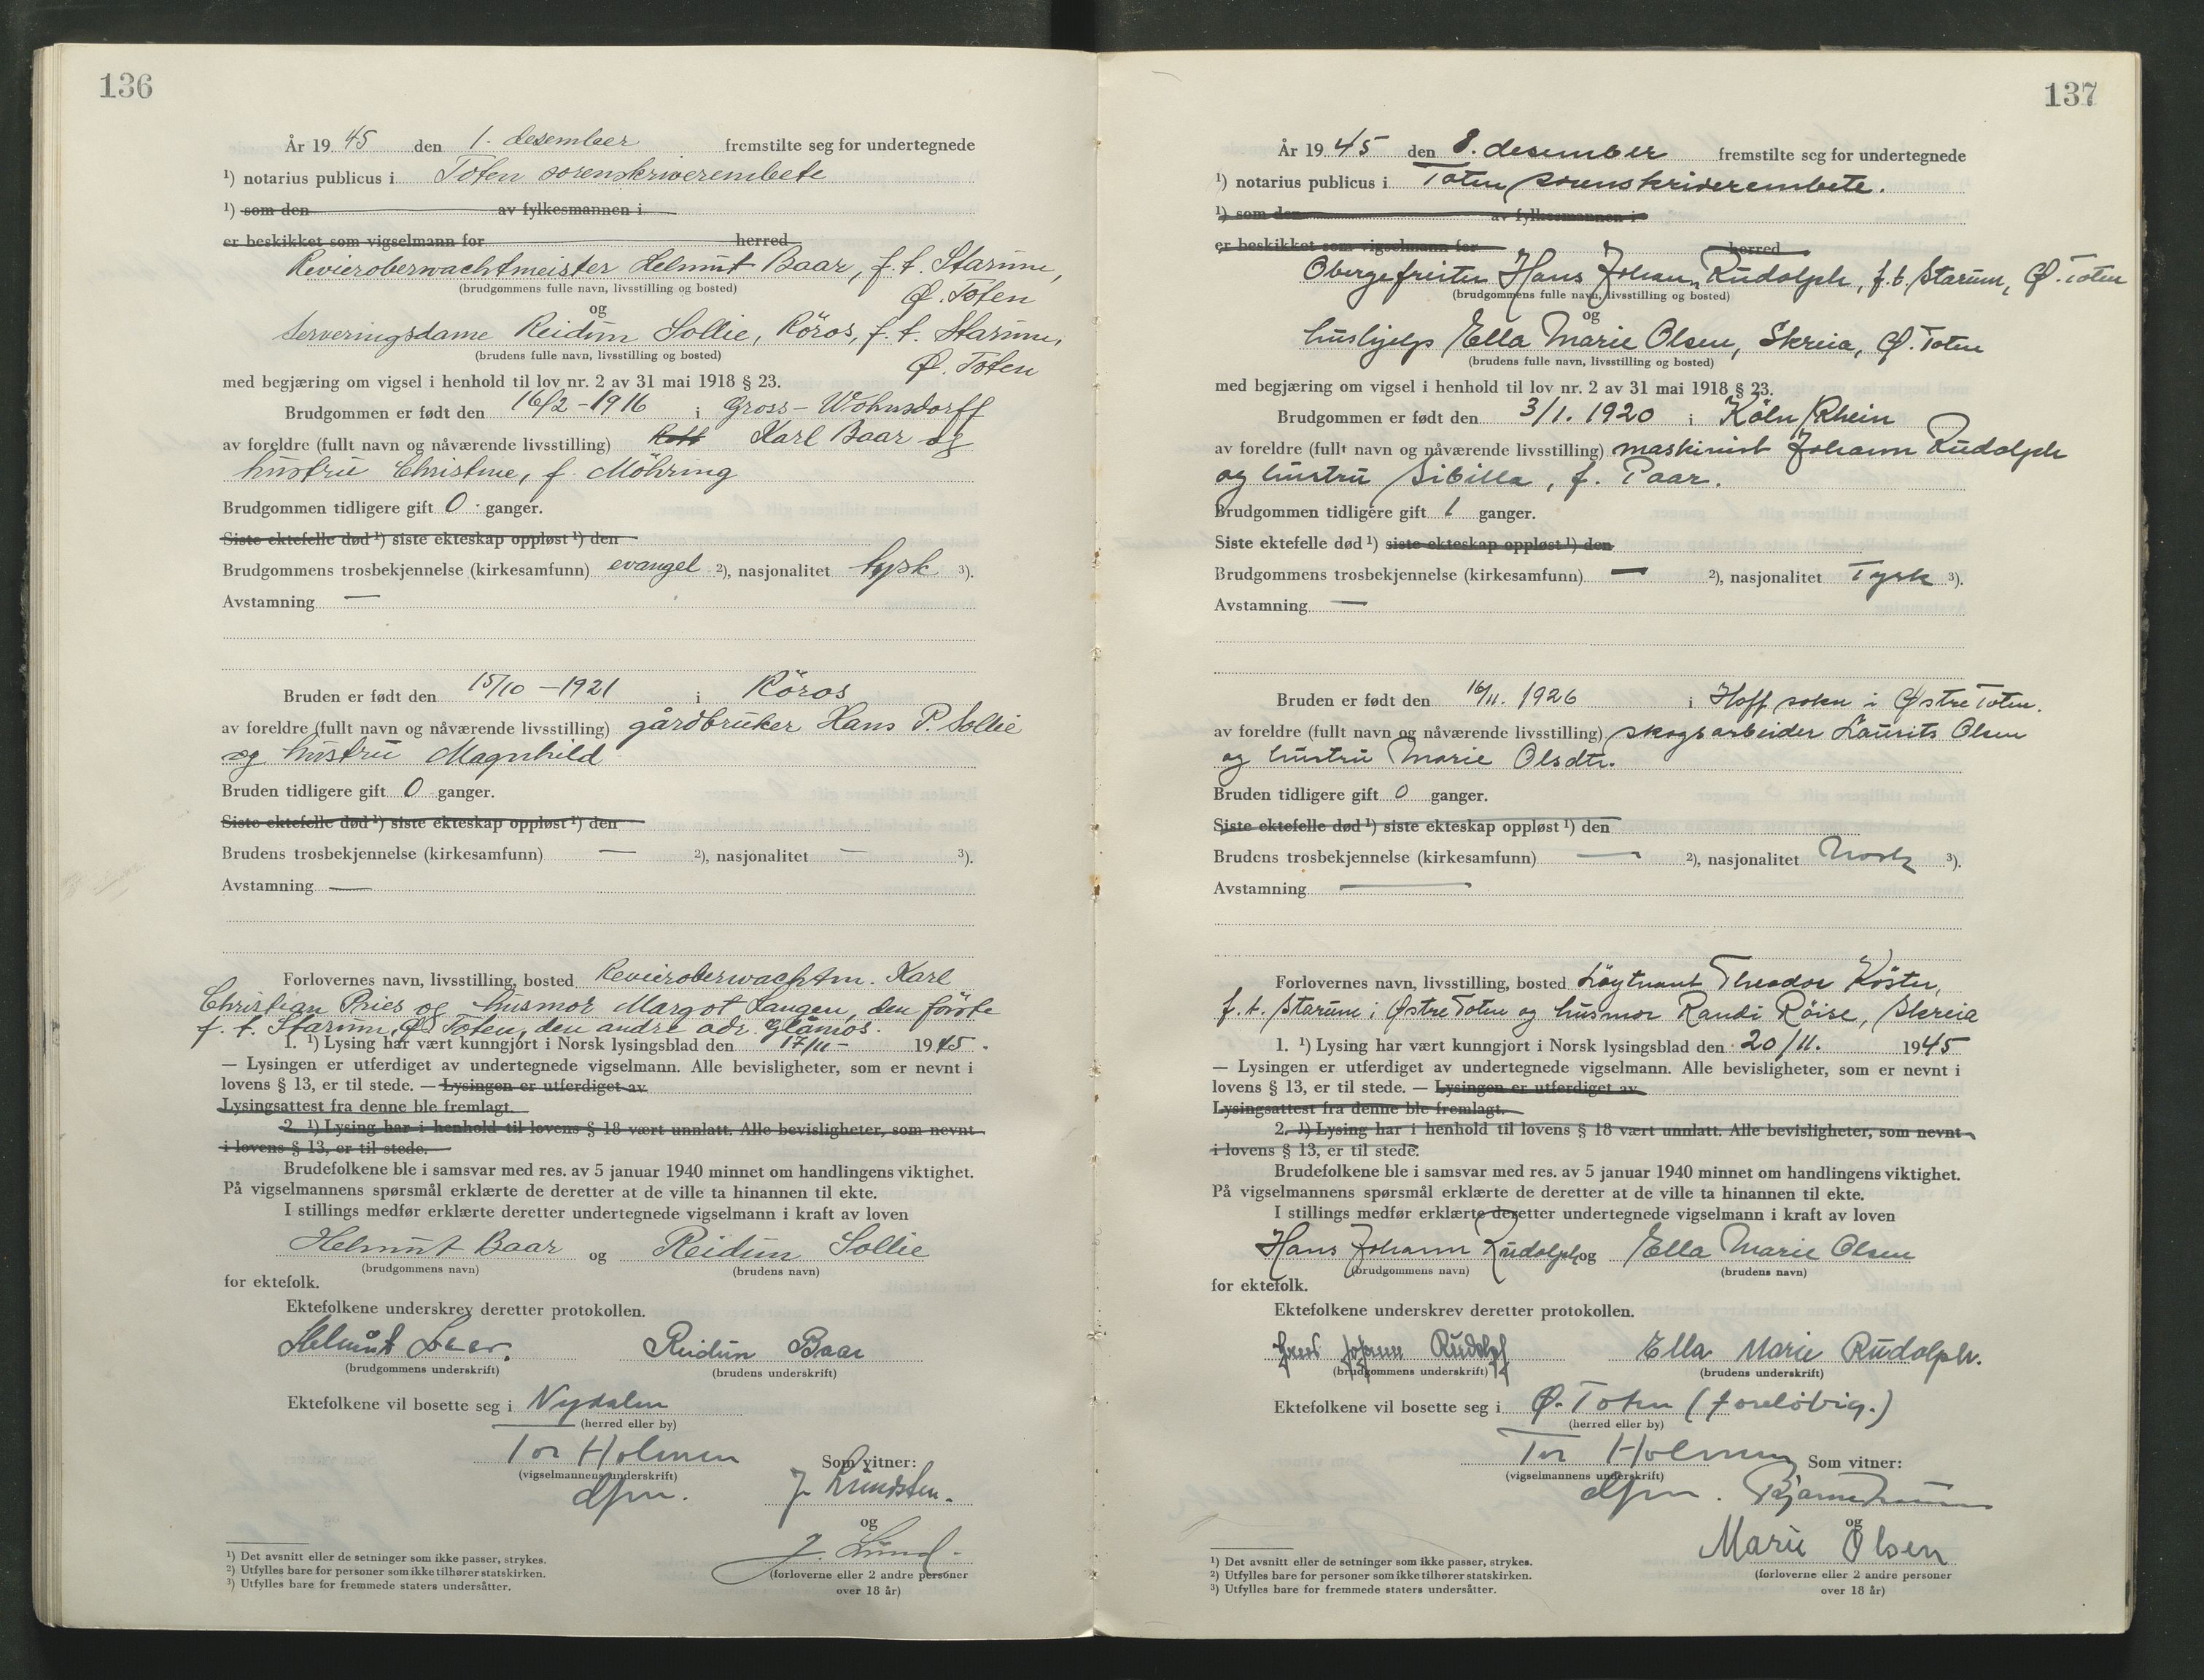 136
År 19 45 den 1. desember fremstilte seg for undertegnede
¹) notarius publicus i Toten sorenskriverembete
¹) som den av fylkesmannen i
er beskikket som vigselmann for herred
Revieroberwachtmeister Helmut Baar, f. t. Starum,
(brudgommens fulle navn, livsstilling og bosted) Ø. Toten
og
Serveringsdame Reidun Sollie, Röros, f. t. Starum,
(brudens fulle navn, livsstilling og bosted) Ø. Toten
med begjæring om vigsel i henhold til lov nr. 2 av 31 mai 1918 § 23.
Brudgommen er født den 16/2 - 1916 i Gross - Wohnsdorff
av foreldre (fullt navn og nåværende livsstilling) Karl Baar og
hustru Christine, f. Möhring
Brudgommen tidligere gift 0 ganger.
Siste ektefelle død ¹) siste ekteskap oppløst ¹) den
Brudgommens trosbekjennelse (kirkesamfunn) evangel ²), nasjonalitet tysk ³).
Avstamning —
Bruden er født den 15/10 - 1921 i Röros
av foreldre (fullt navn og nåværende livsstilling) gårdbruker Hans P. Sollie
og hustru Magnhild
Bruden tidligere gift 0 ganger.
Siste ektefelle død ¹) siste ekteskap oppløst ¹) den
Brudens trosbekjennelse (kirkesamfunn) — ²), nasjonalitet — ³).
Avstamning —
Forlovernes navn, livsstilling, bosted Revieroberwachtm. Karl
Christian Pries og husmor Margot Langen, den förste
f. t. Starum, Ø. Toten, den andre adr. Glåmos.
1. ¹) Lysing har vært kunngjort i Norsk lysingsblad den 17/11 - 1945.
— Lysingen er utferdiget av undertegnede vigselmann. Alle bevisligheter, som er nevnt i
lovens § 13, er til stede. — Lysingen er utferdiget av
Lysingsattest fra denne ble fremlagt.
2. ¹) Lysing har i henhold til lovens § 18 vært unnlatt. Alle bevisligheter, som nevnt
i lovens § 13, er til stede.
Brudefolkene ble i samsvar med res. av 5 januar 1940 minnet om handlingens viktighet.
På vigselmannens spørsmål erklærte de deretter at de ville ta hinannen til ekte.
I stillings medfør erklærte deretter undertegnede vigselmann i kraft av loven
Helmut Baar og Reidun Sollie
(brudgommens navn) (brudens navn)
for ektefolk.
Ektefolkene underskrev deretter protokollen.
Helmut Baar. Reidun Baar
(brudgommens underskrift) (brudens underskrift)
Ektefolkene vil bosette seg i Nydalen
(herred eller by)
Tor Holmen Som vitner:
(vigselmannens underskrift)
dfm. J. Lundsten.
og
J. Lund
(forloverne eller 2 andre personer
over 18 år)
¹) Det avsnitt eller de setninger som ikke passer, strykes.
²) Utfylles bare for personer som ikke tilhører statskirken.
³) Utfylles bare for fremmede staters undersåtter.
137
År 19 45 den 8. desember fremstilte seg for undertegnede
¹) notarius publicus i Toten sorenskriverembete.
¹) som den av fylkesmannen i
er beskikket som vigselmann for herred
Obergefreiter Hans Johann Rudolph, f. t. Starum, Ø. Toten
(brudgommens fulle navn, livsstilling og bosted)
og
hushjelp Ella Marie Olsen, Skreia, Ø. Toten
(brudens fulle navn, livsstilling og bosted)
med begjæring om vigsel i henhold til lov nr. 2 av 31 mai 1918 § 23.
Brudgommen er født den 3/1. 1920 i Köln/Rhein
av foreldre (fullt navn og nåværende livsstilling) maskinist Johann Rudolph
og hustru Sibilla, f. Paar.
Brudgommen tidligere gift 1 ganger.
Siste ektefelle død ¹) siste ekteskap oppløst ¹) den
Brudgommens trosbekjennelse (kirkesamfunn) — ²), nasjonalitet Tysk ³).
Avstamning —
Bruden er født den 16/11. 1926 i Hoff sokn i Østre Toten.
av foreldre (fullt navn og nåværende livsstilling) skogsarbeider Laurits Olsen
og hustru Marie Olsdtr.
Bruden tidligere gift 0 ganger.
Siste ektefelle død ¹) siste ekteskap oppløst ¹) den
Brudens trosbekjennelse (kirkesamfunn) — ²), nasjonalitet Norsk ³).
Avstamning —
Forlovernes navn, livsstilling, bosted Löytnant Theodor Köster,
f. t. Starum i Østre Toten og husmor Randi Röise, Skreia
1. ¹) Lysing har vært kunngjort i Norsk lysingsblad den 20/11. 1945
— Lysingen er utferdiget av undertegnede vigselmann. Alle bevisligheter, som er nevnt i
lovens § 13, er til stede. — Lysingen er utferdiget av
Lysingsattest fra denne ble fremlagt.
2. ¹) Lysing har i henhold til lovens § 18 vært unnlatt. Alle bevisligheter, som nevnt
i lovens § 13, er til stede.
Brudefolkene ble i samsvar med res. av 5 januar 1940 minnet om handlingens viktighet.
På vigselmannens spørsmål erklærte de deretter at de ville ta hinannen til ekte.
I stillings medfør erklærte deretter undertegnede vigselmann i kraft av loven
Hans Johann Rudolph og Ella Marie Olsen
(brudgommens navn) (brudens navn)
for ektefolk.
Ektefolkene underskrev deretter protokollen.
Hans Johann Rudolph Ella Marie Rudolph.
(brudgommens underskrift) (brudens underskrift)
Ektefolkene vil bosette seg i Ø. Toten (foreløbig.)
(herred eller by)
Tor Holmen Som vitner:
(vigselmannens underskrift)
dfm. Bjarne
og
Marie Olsen
(forloverne eller 2 andre personer
over 18 år)
¹) Det avsnitt eller de setninger som ikke passer, strykes.
²) Utfylles bare for personer som ikke tilhører statskirken.
³) Utfylles bare for fremmede staters undersåtter.